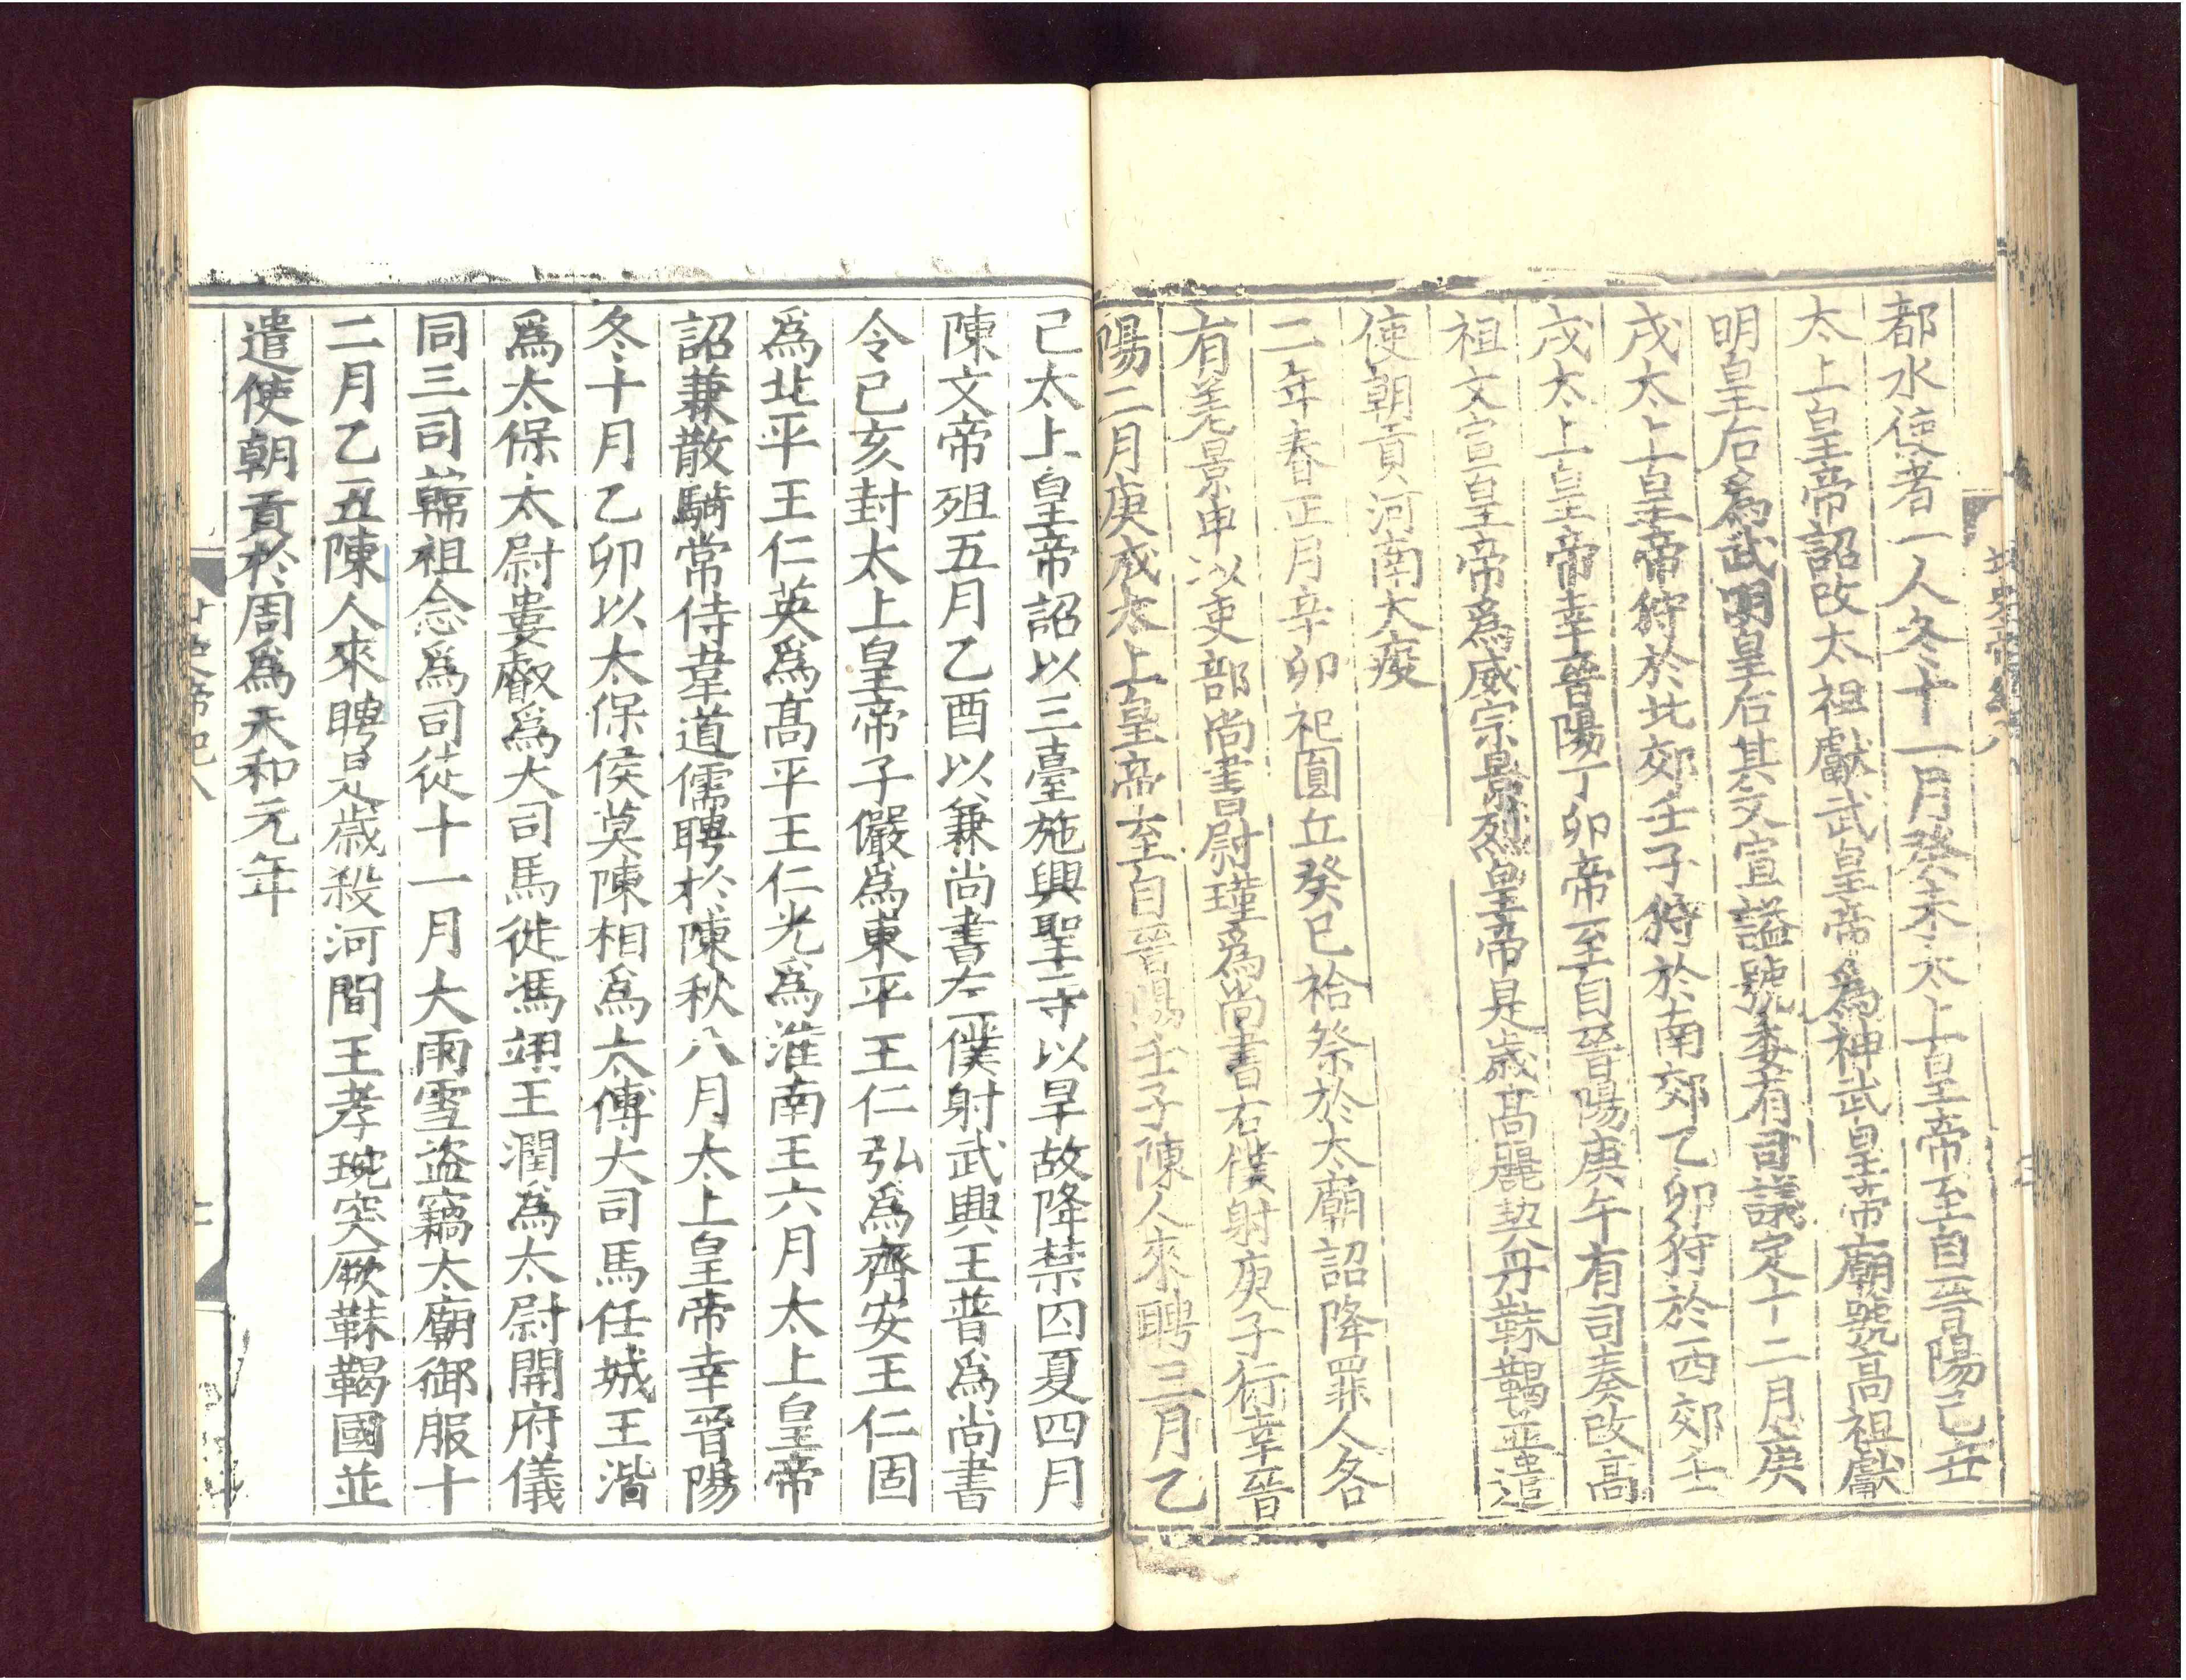 都水使者一人冬十一月癸未太上皇帝至自晉陽己丑
太上皇帝詔改太祖獻武皇帝爲神武皇帝廟號高祖獻
明皇后爲武明皇后其文宣謚號委有司議定十二月庚
戌太上皇帝狩於北郊壬子狩於南郊乙卯狩於西郊壬
戌太上皇帝幸晉陽丁卯帝至自晉陽庚午有司奏改高
祖文宣皇帝爲威宗景烈皇帝是歲高麗契丹靺鞨並遣
使朝貢河南大疫
二年春正月辛卯祀圓丘癸巳祫祭於太廟詔降罪人各
有差景申以吏部尚書尉瑾爲尚書右僕射庚子行幸晉
陽二月庚戌太上皇帝至自晉陽壬子陳人來聘三月乙
己太上皇帝詔以三臺施興聖寺以旱故降禁囚夏四月
陳文帝殂五月乙酉以兼尚書左僕射武興王普爲尚書
令己亥封太上皇帝子儼爲東平王仁弘爲齊安王仁固
爲北平王仁英爲高平王仁光爲淮南王六月太上皇帝
詔兼散騎常侍韋道儒聘於陳秋八月太上皇帝幸晉陽
冬十月乙卯以太保侯莫陳相爲太傅大司馬任城王湝
爲太保太尉婁叡爲大司馬徙馮翊王潤爲太尉開府儀
同三司韓祖念爲司徒十一月大雨雪盜竊太廟御服十
二月乙丑陳人來聘是歲殺河間王孝琬突厥靺鞨國並
遣使朝貢於周爲天和元年